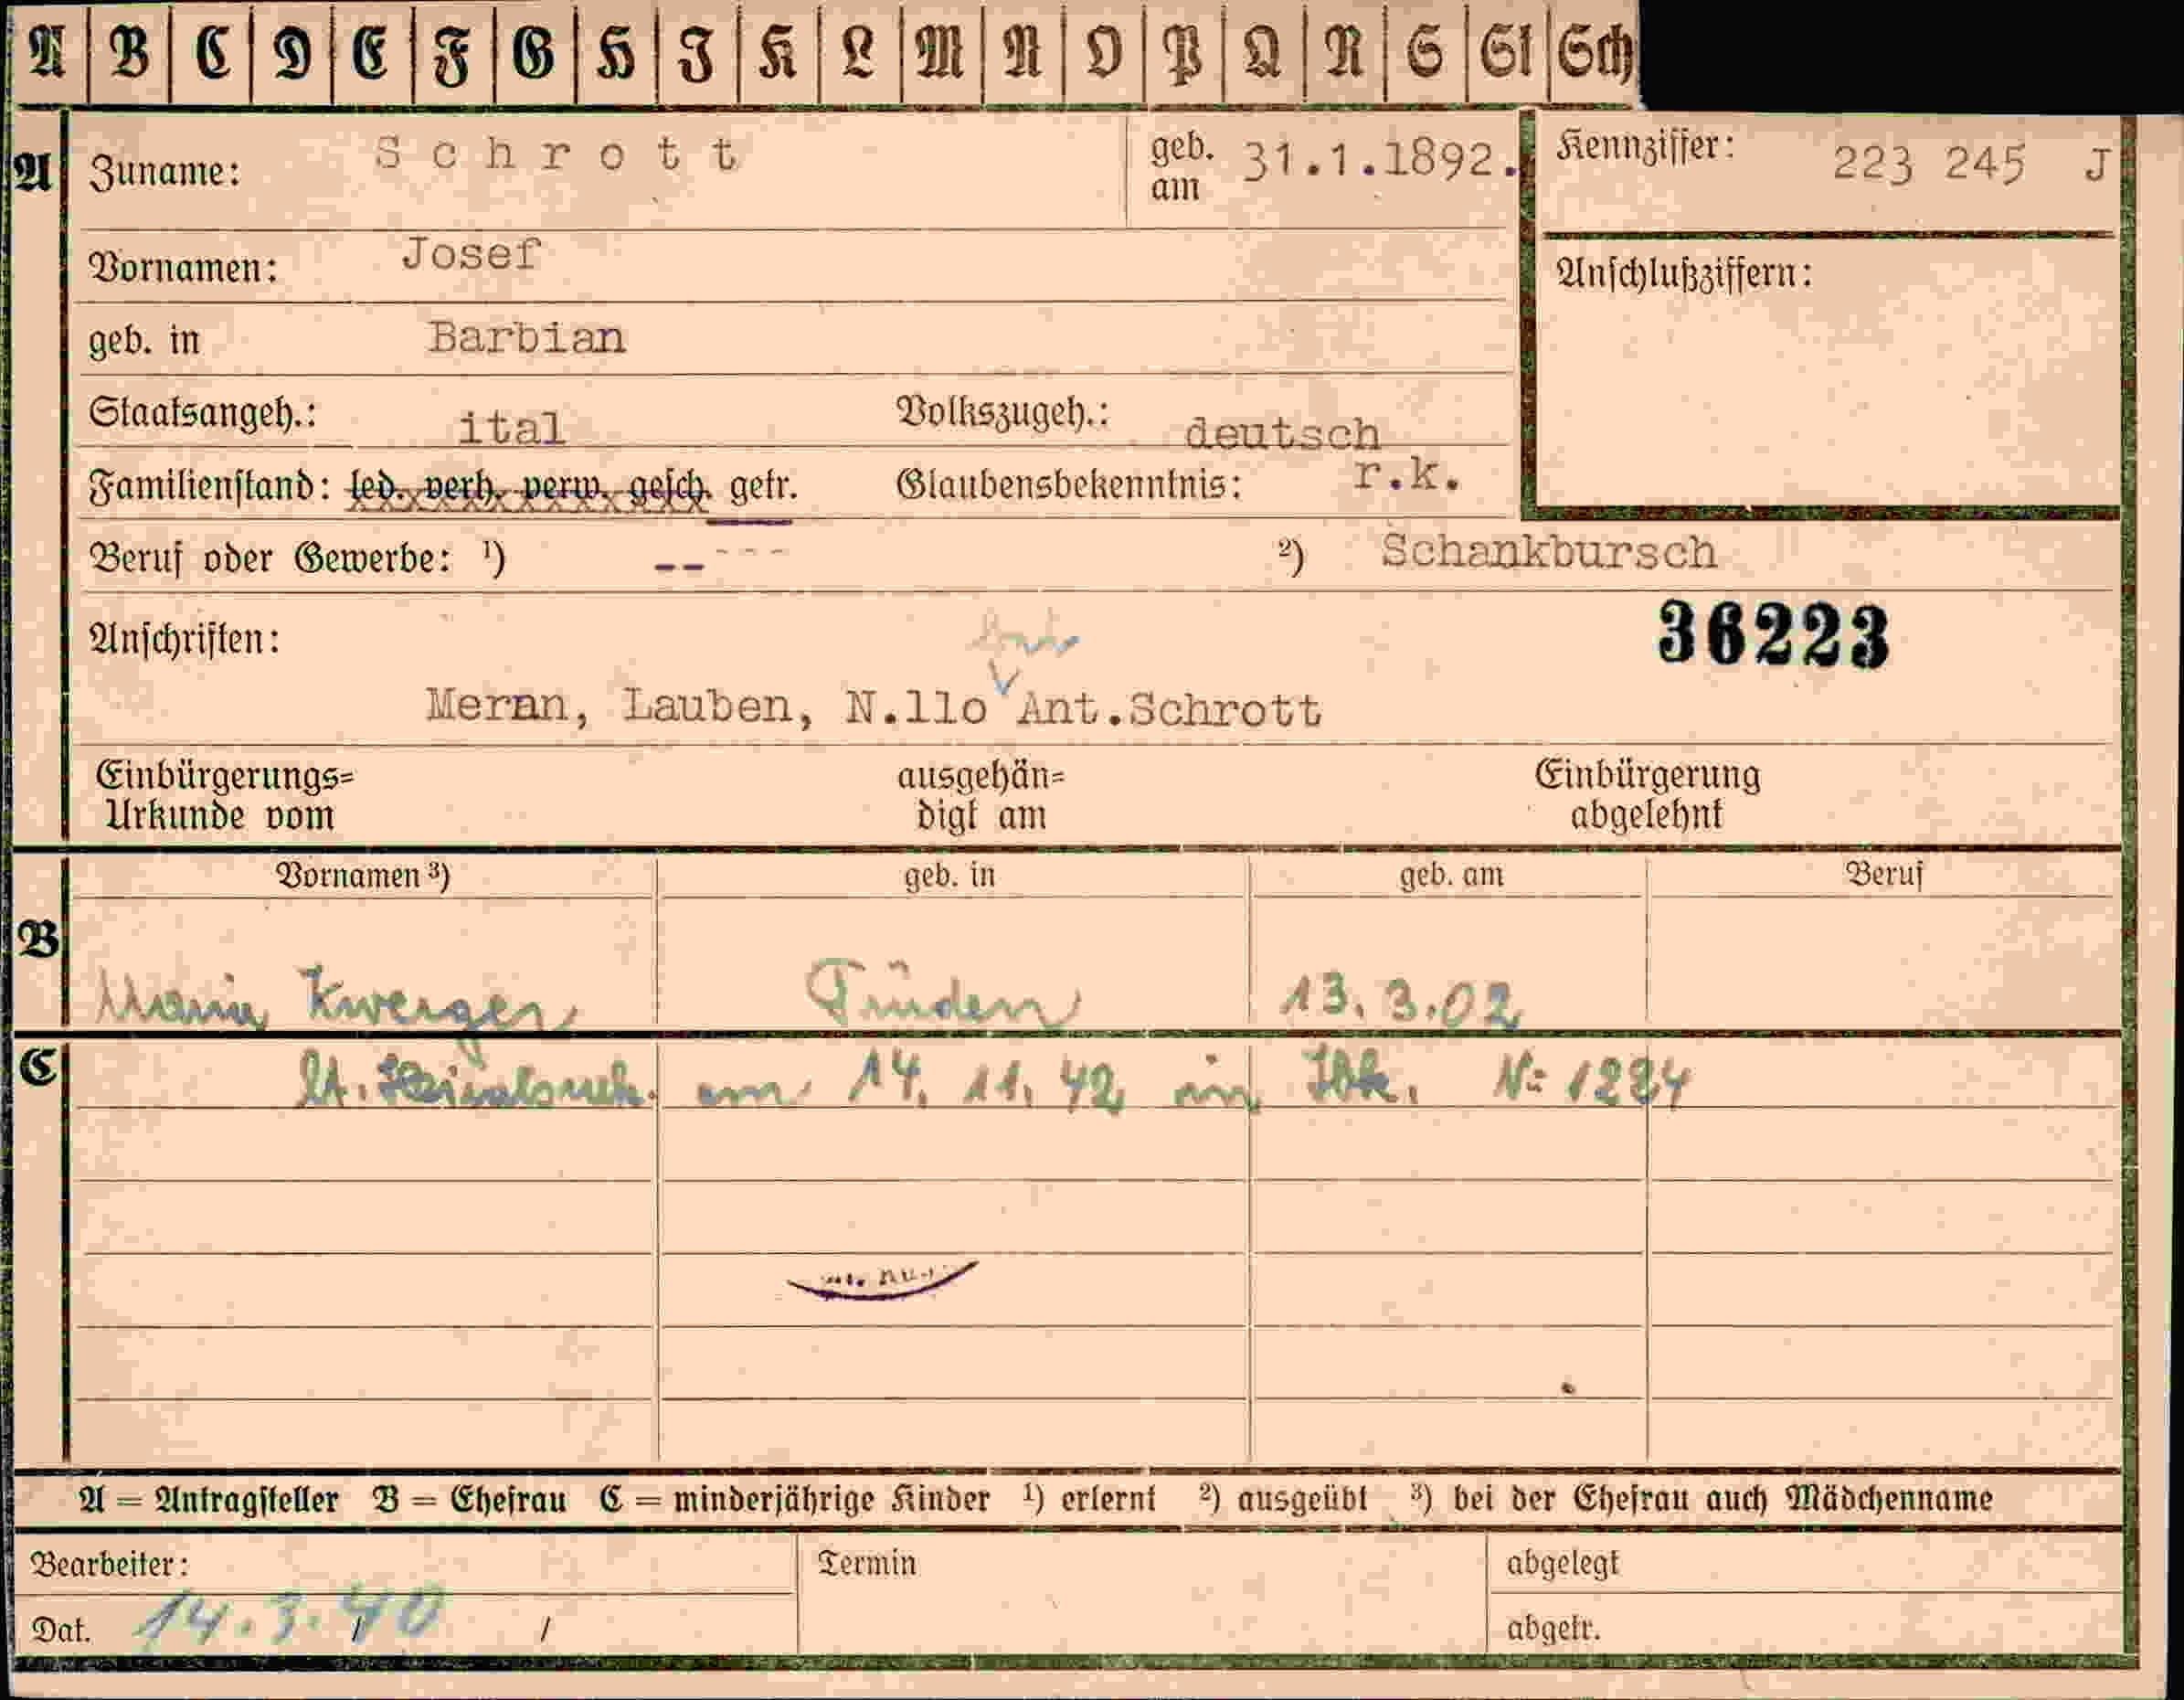 A B C D E F G H I K L M N O P Q R S St Sch
A Zuname: Schrott geb. am 31.1.1892. Kennziffer: 223 245 J
Vornamen: Josef Anschlußziffern:
geb. in Barbian
Staatsangeh.: ital Volkszugeh.: deutsch
Familienstand: led. verh. verw. gesch. getr. Glaubensbekenntnis: r.k.
Beruf oder Gewerbe: ¹) -- --- ²) Schankbursch
Anschriften: 36223
Meran, Lauben, N.llo Ant.Schrott
Einbürgerungs= ausgehän= Einbürgerung
Urkunde vom digt am abgelehnt
Vornamen ³) geb. in geb. am Beruf
B
Maria Kwerger 13.3.02
C lt. am 14. 11. 42 in Ibk. No 1224
A = Antragsteller B = Ehefrau C = minderjährige Kinder ¹) erlernt ²) ausgeübt ³) bei der Ehefrau auch Mädchenname
Bearbeiter: Termin abgelegt
Dat. 14.3.40 / / abgetr.